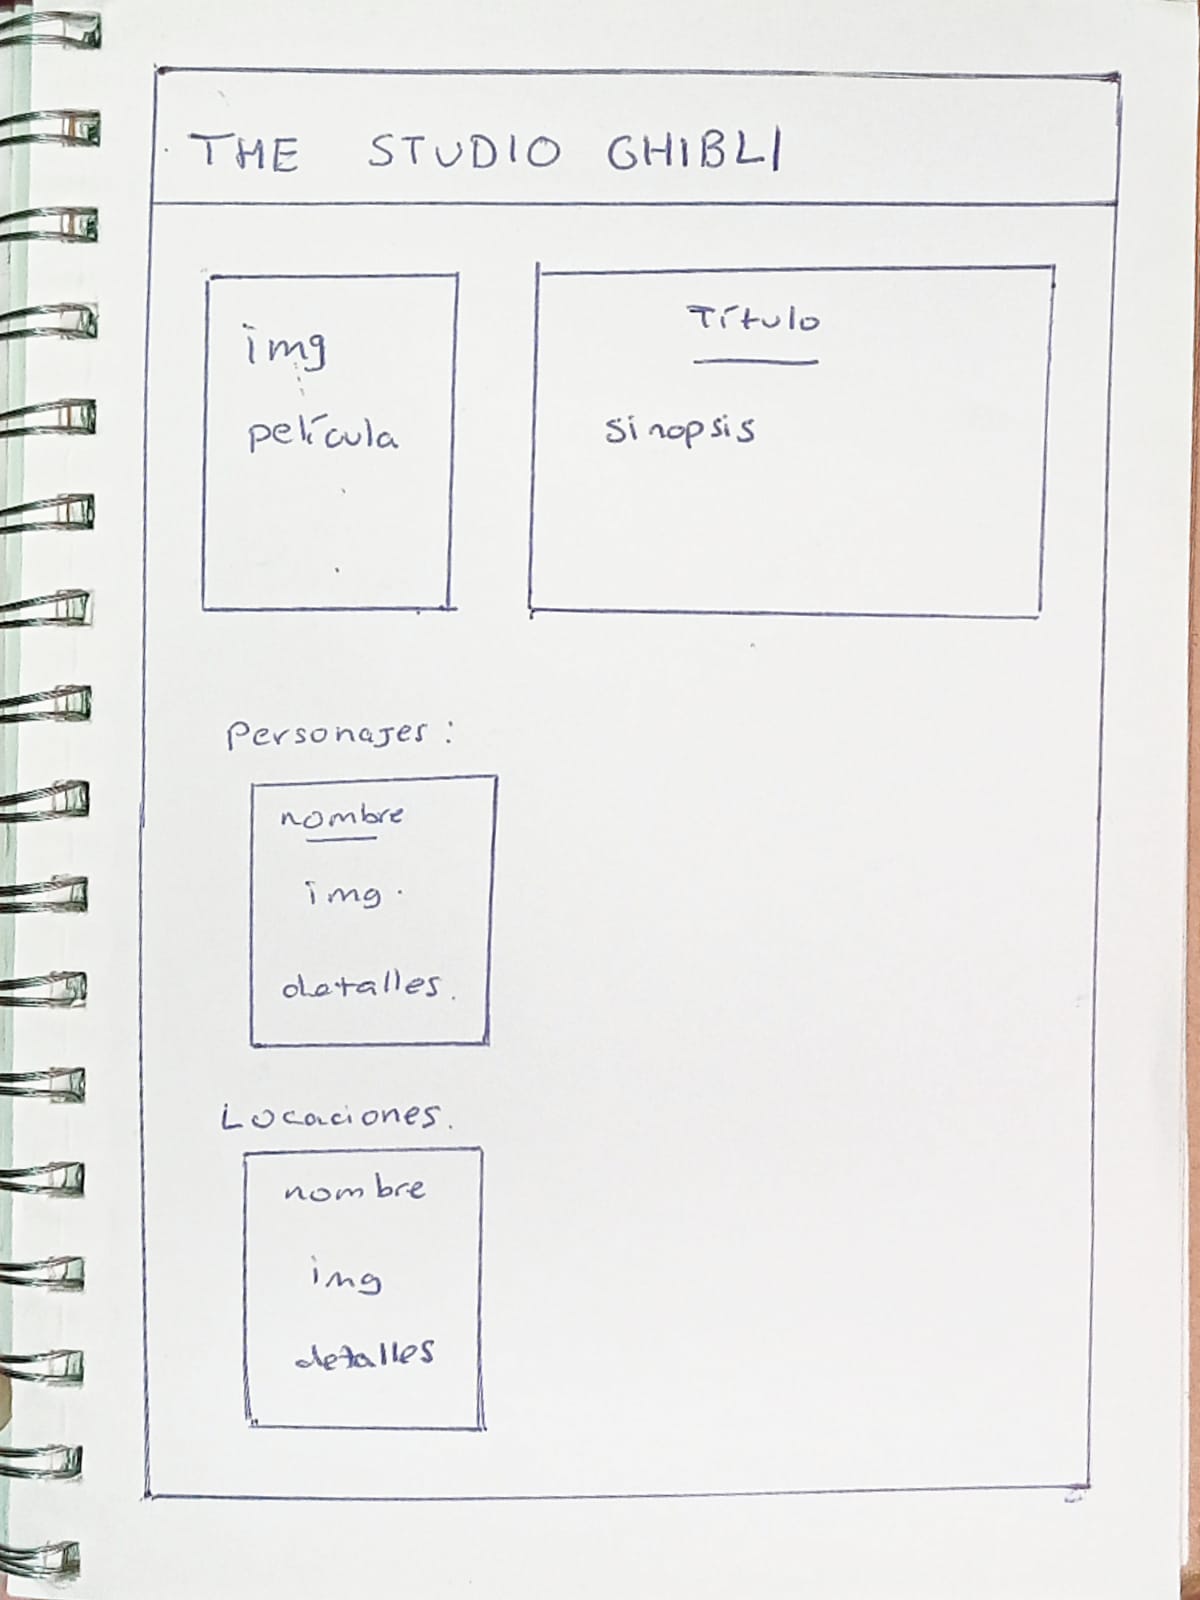 THE STUDIO GHIBLI
img
película
Título
sinopsis
Personajes:
nombre
img.
detalles.
Locaciones.
nombre
img
detalles